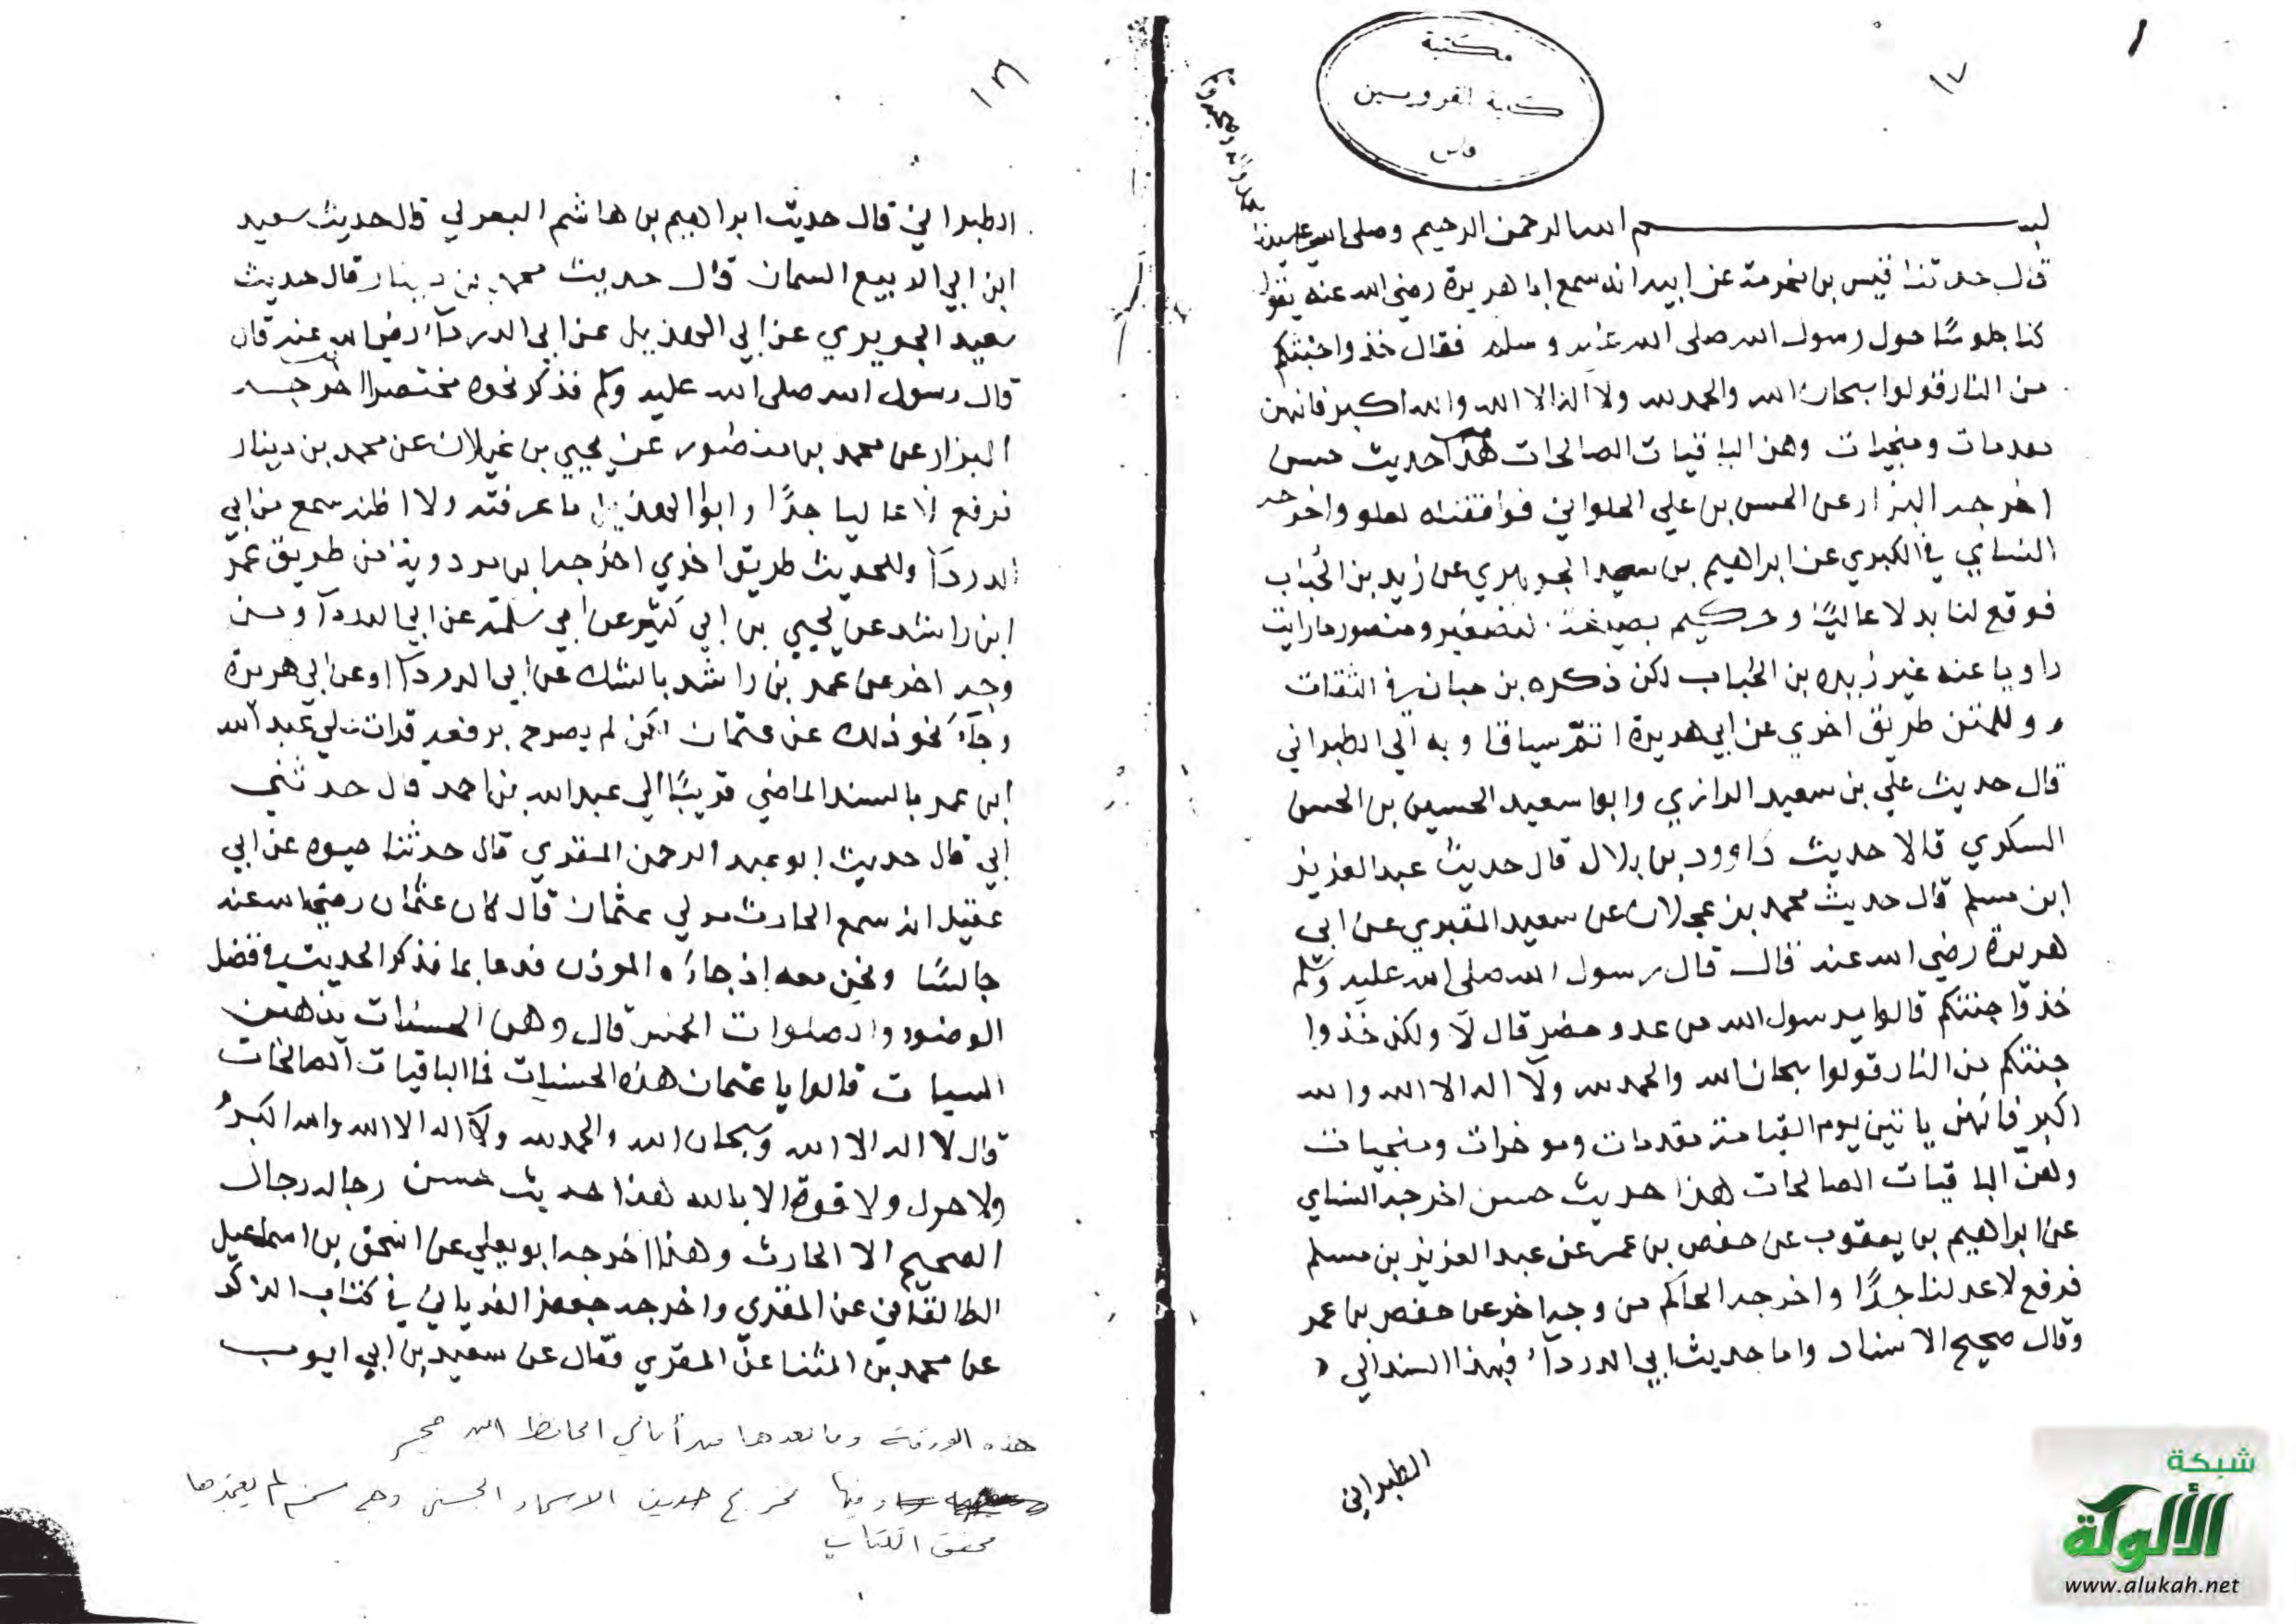 ١
١٧
مكتبة
كلية القرويين
فاس
بسم الله الرحمن الرحيم وصلى الله على سيدنا
محمد وآله وصحبه وسلم
قال حدثنا قيس بن مخرمة عن ابيه انه سمع ابا هريرة رضي الله عنه يقول
كنا جلوسًا حول رسول الله صلى الله عليه وسلم فقال خذوا جنتكم
من النار قولوا سبحان الله والحمد لله ولا اله الا الله والله اكبر فانهن
مقدمات ومنجيات وهن الباقيات الصالحات هذا حديث حسن
اخرجه البزار عن الحسن بن علي الحلواني فوافقناه بعلو واخرجه
النساي في الكبري عن ابراهيم بن سعيد الجوهري عن زيد بن الحباب
فوقع لنا بدلا عاليًا وحكيم بصيغة التصغير ومنصور ما رايت
راويا عنه غير زيد بن الحباب لكن ذكره بن حبان في الثقات
وللمتن طريق اخري عن ابي هريرة اتم سياقا وبه الي الطبراني
قال حديث علي بن سعيد الرازي وابوا سعيد الحسين بن الحسن
السكري قالا حديث داوود بن بلال قال حديث عبد العزيز
ابن مسلم قال حديث محمد بن عجلان عن سعيد المقبري عن ابي
هريرة رضي الله عنه قال قال رسول الله صلى الله عليه وسلم
خذوا جنتكم قالوا يرسول الله من عدو حضر قال لا ولكن خذوا
جنتكم من النار قولوا سبحان الله والحمد لله ولا اله الا الله والله
اكبر فانهن ياتين يوم القيامة مقدمات وموخرات ومنجيات
وهن الباقيات الصالحات هذا حديث حسن اخرجه النساي
عن ابراهيم بن يعقوب عن حفص بن عمر عن عبد العزيز بن مسلم
فوقع لا عد لنا جدًا واخرجه الحاكم من وجه اخر عن حفص بن عمر
وقال صحيح الاسناد واما حديث ابي الدرداء فبهذا السند الي
الطبراني
١٨
الطبراني قال حديث ابراهيم بن هاشم البغوي قال حديث سعيد
ابن ابي الربيع السمان قال حديث محمد بن دينار قال حديث
سعيد الجريري عن ابي الهذيل عن ابي الدرداء رضي الله عنه قال
قال رسول الله صلى الله عليه وسلم فذكر نحوه مختصرا اخرجه
البزار عن محمد بن منصور عن يحيي بن غيلان عن محمد بن دينار
فوقع لنا عاليا جدًا وابوا الهذيل ما عرفته ولا اظنه سمع من ابي
الدرداء وللحديث طريق اخري اخرجها بن مردويه من طريق عمر
ابن راشد عن يحيي بن ابي كثير عن ابي سلمة عن ابي الدرداء ومن
وجه اخر عن عمر بن راشد بالشك عن ابي الدرداء او عن ابي هريرة
وجاء نحو ذلك عن عثمان لكن لم يصرح برفعه قرات علي عبد الله
ابن عمر بالسند الماضي قريبًا الي عبد الله بن احمد قال حدثني
ابي قال حديث ابو عبد الرحمن المقري قال حدثنا حيوه عن ابي
عقيل انه سمع الحارث مولي عثمان قال كان عثمان رضي الله عنه
جالسًا ونحن معه اذ جاءه الموذن فدعا بما فذكر الحديث في فضل
الوضوء والصلوات الخمس قال وهن الحسنات يذهبن
السيات قالوا يا عثمان هذه الحسنات فما الباقيات الصالحات
قال لا اله الا الله وسبحان الله والحمد لله ولا اله الا الله والله اكبر
ولا حول ولا قوة الا بالله هذا حديث حسن رجاله رجال
الصحيح الا الحارث وهذا اخرجه ابو يعلي عن اسحق بن اسماعيل
الطالقاني عن المقري واخرجه جعفر الفريابي في كتاب الذكر
عن محمد بن المثنا عن المقري فقال عن سعيد بن ابي ايوب
هذه الورقة وما بعدها من أمالي الحافظ ابن حجر
وفيها تخريج حديث الاسماء الحسنى وهي لم يعتمدها
محقق الكتاب
شبكة
الألوكة
www.alukah.net